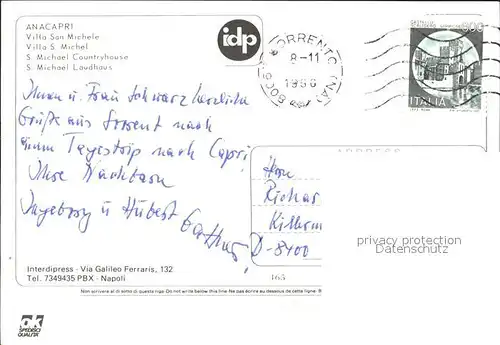 ANACAPRI
Villa San Michele
Villa S. Michel
S. Michael Countryhouse
S. Michael Laudhaus
idp
SORRENTO (NA)
8-11
80067
CASTELLO
ITALIA
Ihnen u. Frau Schwarz herzliche
Grüße aus Sorrent nach
einem Tagestrip nach Capri!
Ihre Nachbarn
Ingeborg u Hubert
ADDRESS
Herrn
Richar
D-8400
privacy protection
Datenschutz
165
Interdipress - Via Galileo Ferraris, 132
Tel. 7349435 PBX - Napoli
Non scrivere al di sotto di questa riga - Do not write below this line - Ne pas écrire au dessous de cette ligne - B
ok
SPEDISCI
QUALITA'